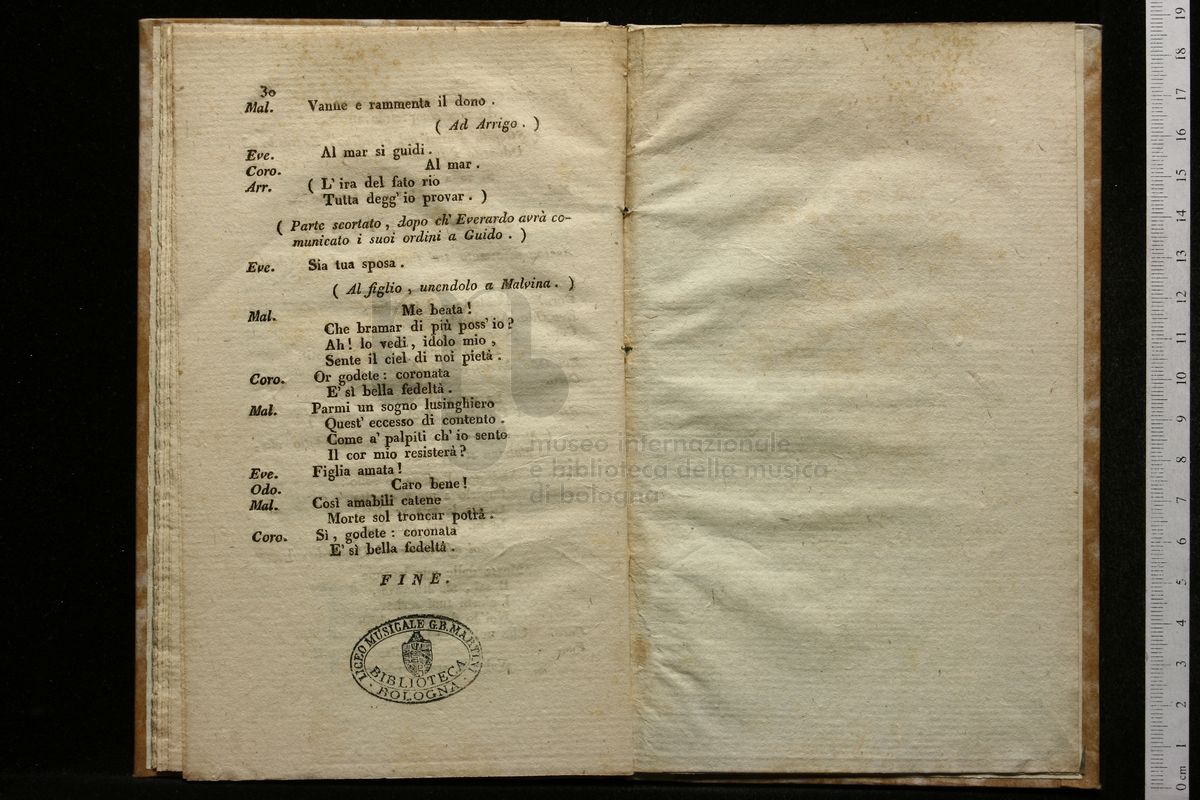 30
Mal. Vanne e rammenta il dono .
( Ad Arrigo . )
Eve. Al mar si guidi .
Coro. Al mar .
Arr. ( L' ira del fato rio
Tutta degg' io provar . )
( Parte scortato , dopo ch' Everardo avrà co-
municato i suoi ordini a Guido . )
Eve. Sia tua sposa .
( Al figlio , unendolo a Malvina . )
Mal. Me beata !
Che bramar di più poss' io ?
Ah ! lo vedi , idolo mio ,
Sente il ciel di noi pietà .
Coro. Or godete : coronata
E' sì bella fedeltà .
Mal. Parmi un sogno lusinghiero
Quest' eccesso di contento .
Come a' palpiti ch' io sento
Il cor mio resisterà ?
Eve. Figlia amata !
Odo. Caro bene !
Mal. Così amabili catene
Morte sol troncar potrà .
Coro. Sì , godete : coronata
E' sì bella fedeltà .
FINE .
LICEO MUSICALE G.B. MARTINI
BIBLIOTECA
· BOLOGNA ·
museo internazionale
e biblioteca della musica
di bologna
0 cm 1 2 3 4 5 6 7 8 9 10 11 12 13 14 15 16 17 18 19